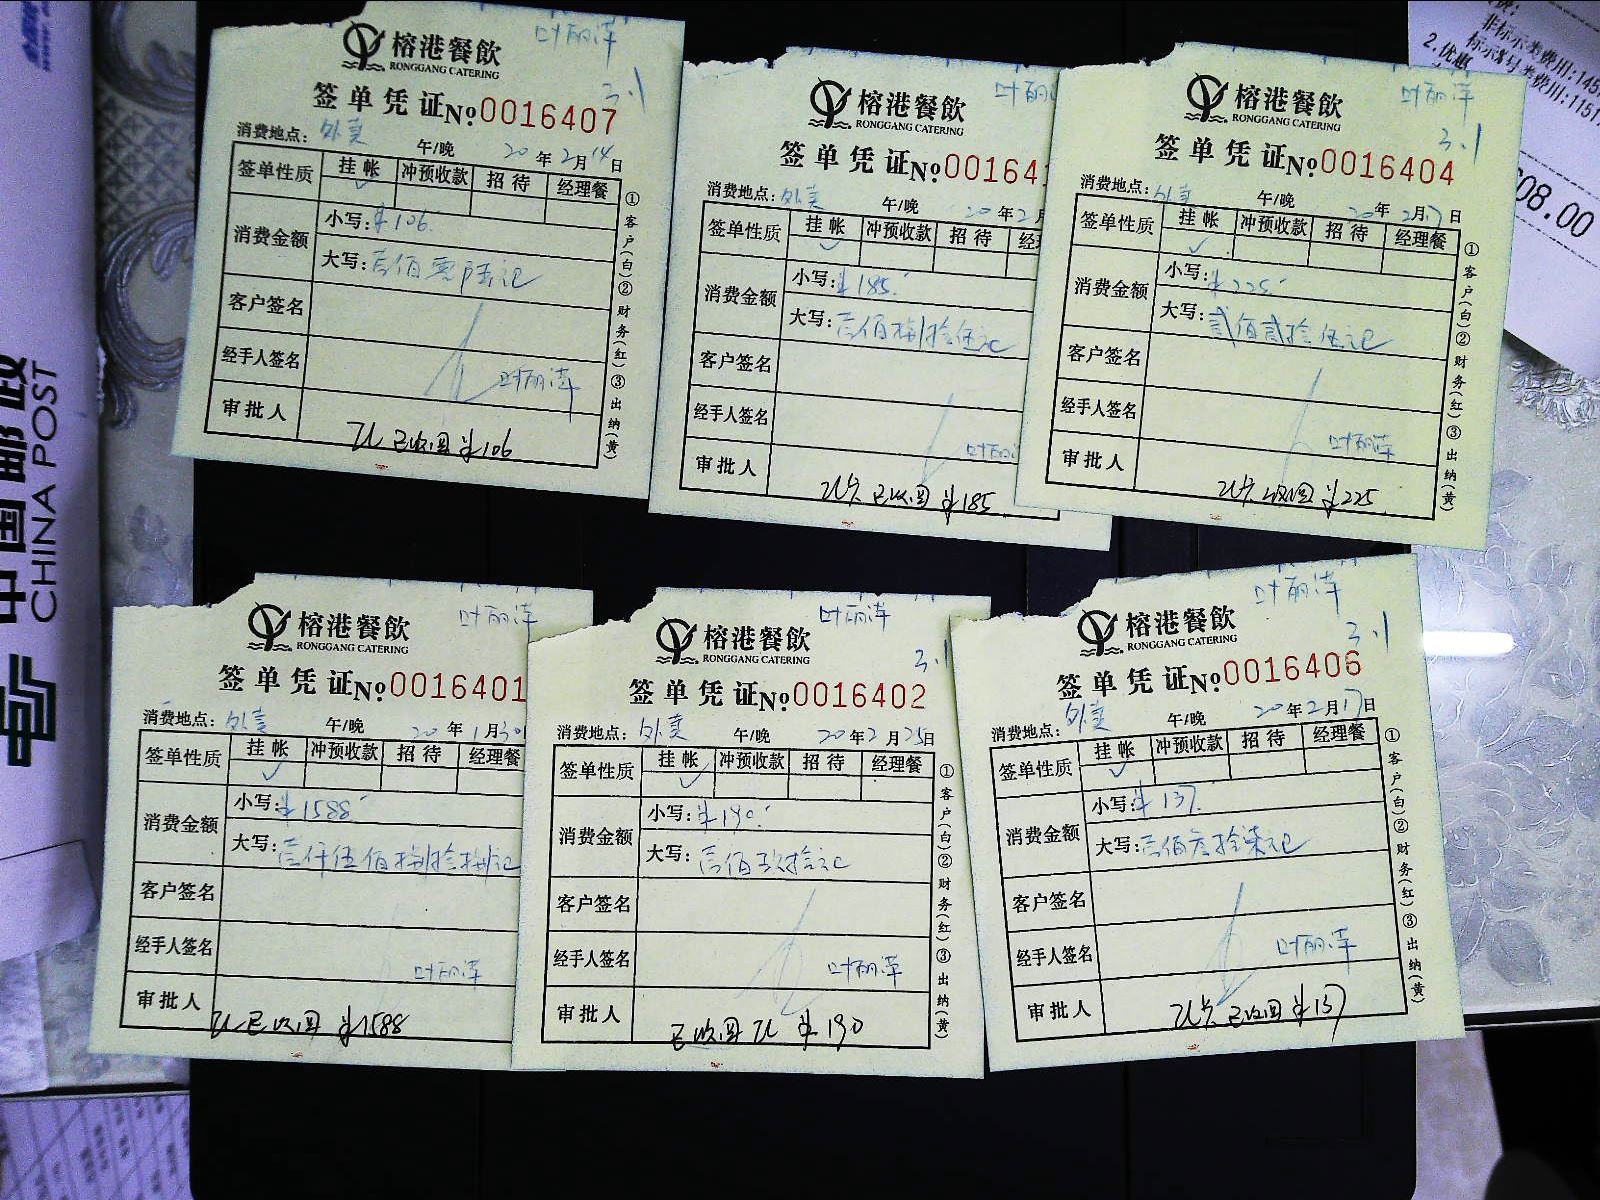 榕港餐飲
RONGGANG CATERING
叶丽萍
3.1
签单凭证No.0016407
消费地点：外卖 午/晚 20年2月14日
签单性质 挂帐 冲预收款 招待 经理餐
消费金额 小写：¥106.
大写：壹佰零陆元
客户签名
经手人签名 叶丽萍
审批人
已收回 ¥106
①客户(白)②财务(红)③出纳(黄)
榕港餐飲
RONGGANG CATERING
叶丽
签单凭证No.001641
消费地点：外卖 午/晚 20年2月
签单性质 挂帐 冲预收款 招待 经理
消费金额 小写：¥185.
大写：壹佰捌拾伍元
客户签名
经手人签名 叶丽
审批人
已收回 ¥185
榕港餐飲
RONGGANG CATERING
叶丽萍
3.1
签单凭证No.0016404
消费地点：外卖 午/晚 20年2月17日
签单性质 挂帐 冲预收款 招待 经理餐
消费金额 小写：¥225
大写：贰佰贰拾伍元
客户签名
经手人签名 叶丽萍
审批人
收回 ¥225
①客户(白)②财务(红)③出纳(黄)
非标示类费用:145
2.优惠
608.00
中国邮政
CHINA POST
榕港餐飲
RONGGANG CATERING
叶丽萍
签单凭证No.0016401
消费地点：外卖 午/晚 20年1月30
签单性质 挂帐 冲预收款 招待 经理餐
消费金额 小写：¥1588
大写：壹仟伍佰捌拾捌元
客户签名
经手人签名 叶丽萍
审批人
已收回 ¥1588
榕港餐飲
RONGGANG CATERING
叶丽萍
3.1
签单凭证No.0016402
消费地点：外卖 午/晚 20年2月25日
签单性质 挂帐 冲预收款 招待 经理餐
消费金额 小写：¥190.
大写：壹佰玖拾元
客户签名
经手人签名 叶丽萍
审批人
已收回 ¥190
①客户(白)②财务(红)③出纳(黄)
榕港餐飲
RONGGANG CATERING
叶丽萍
3.1
签单凭证No.0016406
消费地点：外卖 午/晚 20年2月17日
签单性质 挂帐 冲预收款 招待 经理餐
消费金额 小写：¥137.
大写：壹佰叁拾柒元
客户签名
经手人签名 叶丽萍
审批人
已收回 ¥137
①客户(白)②财务(红)③出纳(黄)